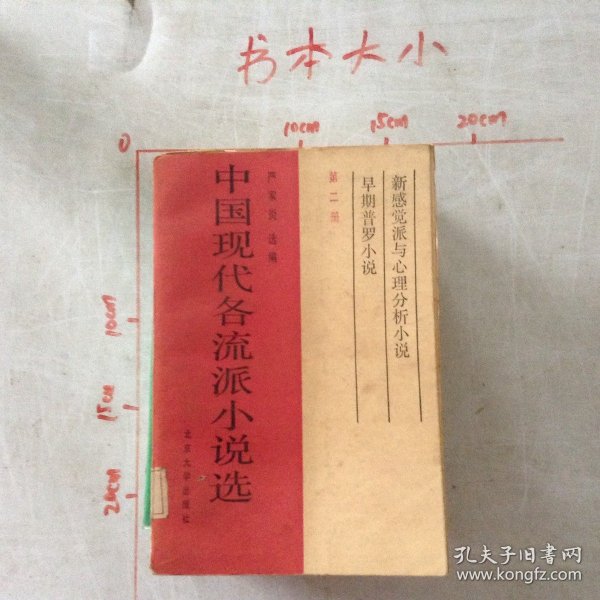 书本大小
10cm
15cm
20cm
0
10cm
15cm
20cm
严家炎 选编
中国现代各流派小说选
北京大学出版社
第二册
新感觉派与心理分析小说
早期普罗小说
孔夫子旧书网
www.kongfz.com